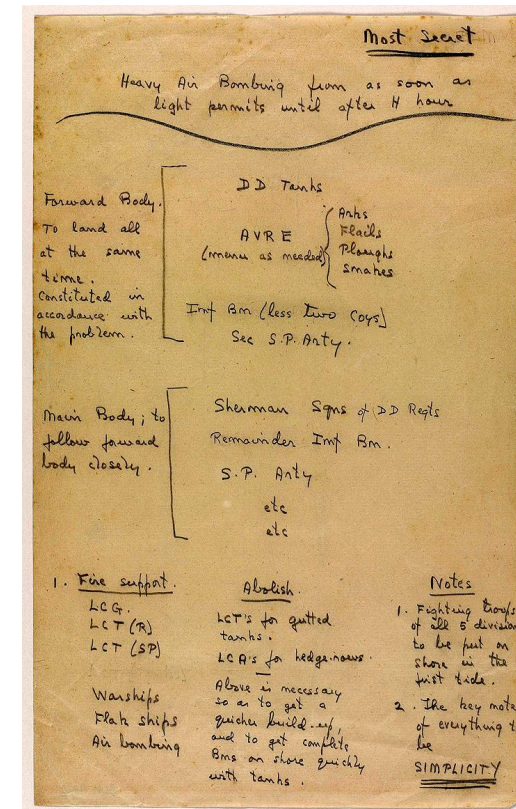 Most Secret
Heavy Air Bombing from as soon as
light permits until after H hour
Forward Body.
To land all
at the same
time.
Constituted in
accordance with
the problem.
DD Tanks
AVRE
(menu as needed)
Arks
Flails
Ploughs
Snakes
Inf Bn (less two Coys)
Sec S.P. Arty.
Main Body; to
follow forward
body closely.
Sherman Sqns of DD Regts
Remainder Inf Bn.
S.P. Arty
etc
etc
1. Fire support.
LCG.
LCT(R)
LCT (SP)
Warships
Flak ships
Air bombing
Abolish.
LCT's for gutted
tanks.
LCA's for hedge-rows.
Above is necessary
so as to get a
quicker build-up,
and to get complete
Bns on shore quickly
with tanks.
Notes
1. Fighting troops
of all 5 division
to be put on
shore in the
first tide.
2. The key note
of everything t
be
SIMPLICITY